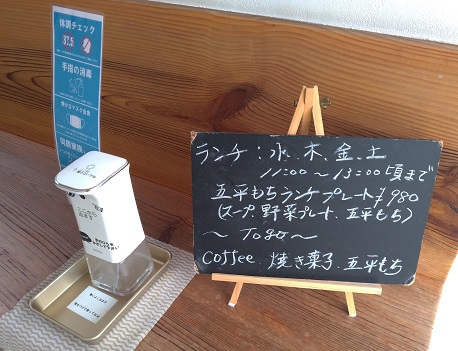 体調チェック
37.5
手指の消毒
ランチ：水、木、金、土
11:00〜13:00頃まで
五平もちランチプレート¥980
(スープ 野菜プレート、五平もち)
〜 ToGo 〜
Coffee 焼き菓子 五平もち